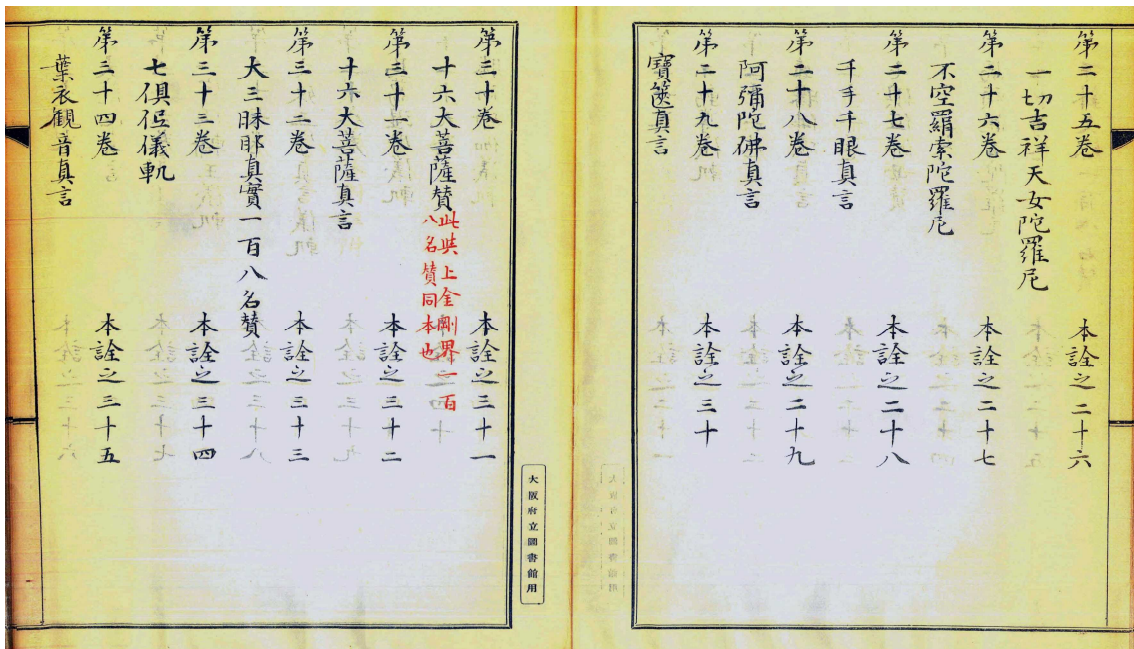 第二十五卷 本詮之二十六
一切吉祥天女陀羅尼
第二十六卷 本詮之二十七
不空羂索陀羅尼
第二十七卷 本詮之二十八
千手千眼真言
第二十八卷 本詮之二十九
阿彌陀佛真言
第二十九卷 本詮之三十
寶篋真言
第三十卷 本詮之三十一
十六大菩薩賛
此與上金剛界一百
八名賛同本也
第三十一卷 本詮之三十二
十六大菩薩真言
第三十二卷 本詮之三十三
大三昧耶真實一百八名賛
第三十三卷 本詮之三十四
七俱胝儀軌
第三十四卷 本詮之三十五
葉衣観音真言
大阪府立圖書館用